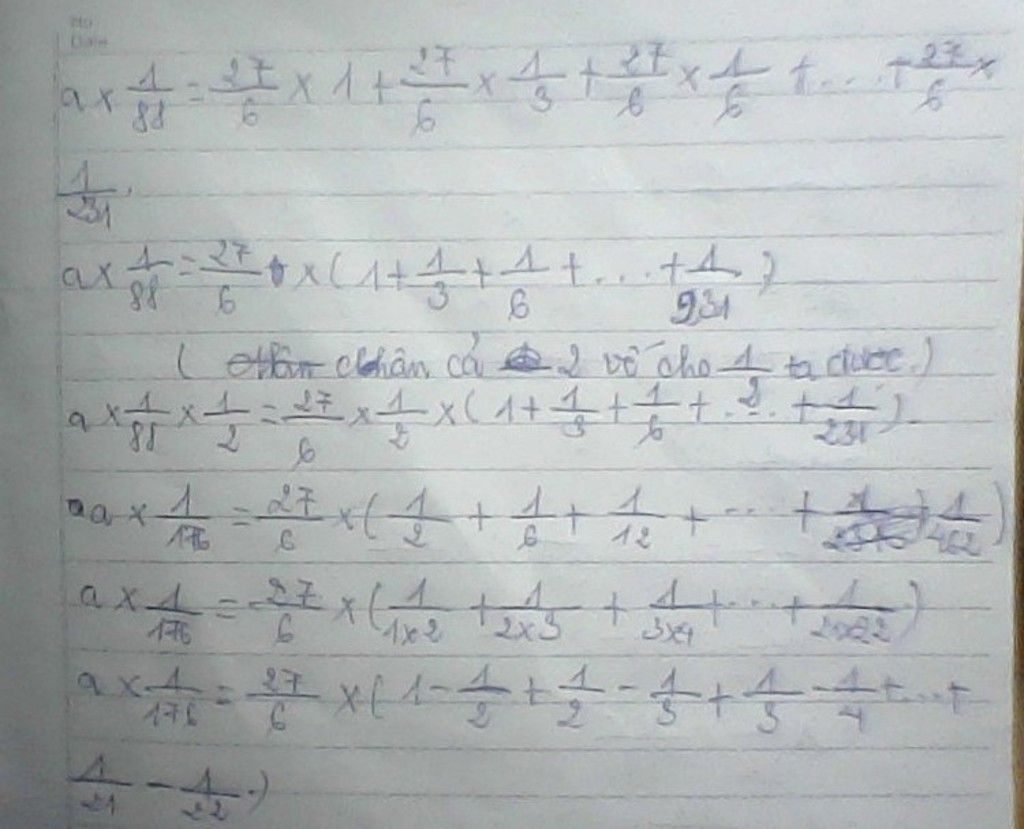 No
Date
a × 1/88 = 27/6 × 1 + 27/6 × 1/3 + 27/6 × 1/6 + ... + 27/6 ×
1/231.
a × 1/88 = 27/6 × ( 1 + 1/3 + 1/6 + ... + 1/231 )
( nhân cả 2 vế cho 1/2 ta được.)
a × 1/88 × 1/2 = 27/6 × 1/2 × ( 1 + 1/3 + 1/6 + ... + 1/231 )
a × 1/176 = 27/6 × ( 1/2 + 1/6 + 1/12 + ... + 1/462 )
a × 1/176 = 27/6 × ( 1/1×2 + 1/2×3 + 1/3×4 + ... + 1/21×22 )
a × 1/176 = 27/6 × ( 1 - 1/2 + 1/2 - 1/3 + 1/3 - 1/4 + ... +
1/21 - 1/22 )